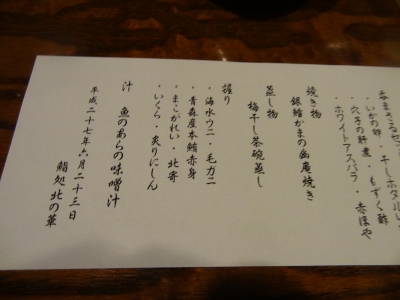 ・いかの卵・干しホタルイ
・穴子の肝煮・もずく酢
・ホワイトアスパラ・赤ほや
焼き物
銀鱈かまの幽庵焼き
蒸し物
梅干し茶碗蒸し
握り
・海水ウニ・毛ガニ
・青森産本鮪赤身
・まこがれい・北寄
・いくら・炙りにしん
汁
魚のあらの味噌汁
平成二十七年六月二十三日
鮨処北の華